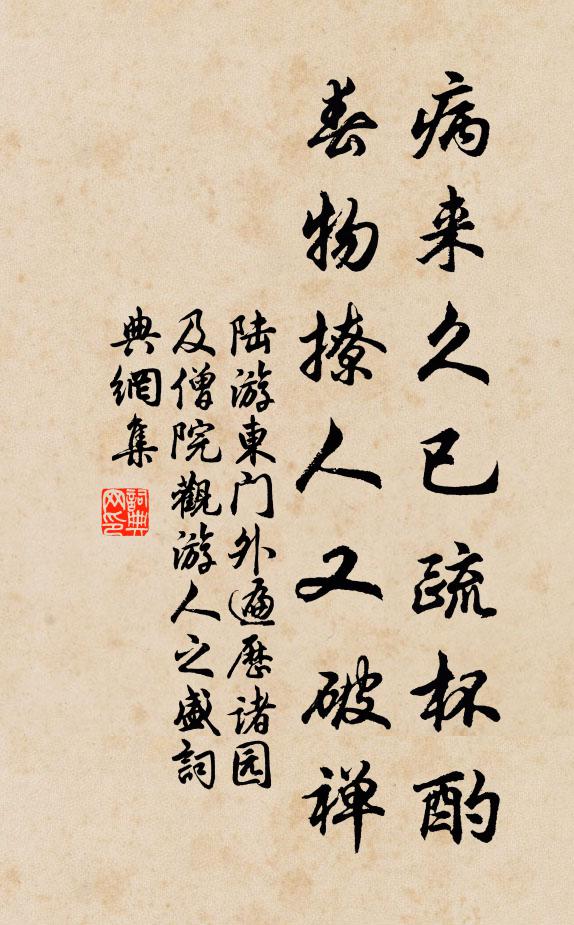 病来久已疏杯酌
春物撩人又破禅
陆游東门外遍歷诸园
及僧院觀游人之盛詞
典網集
詞典网印